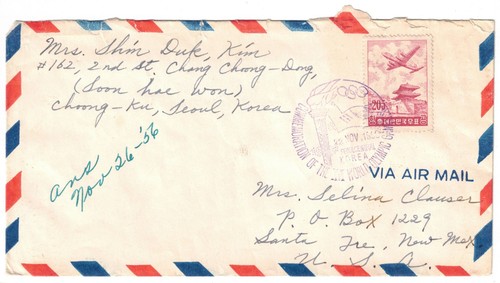 Mrs. Shin Duk, Kim
#162, 2nd St. Chang Choong-Dong,
(Soon hae won)
Choong-Ku, Seoul, Korea
ans
Nov 26 - '56
205
대한민국우표
KOREA
VIA AIR MAIL
Mrs. Selina Clauser
P. O. Box 1229
Santa Fe, New Mex.
U. S. A.